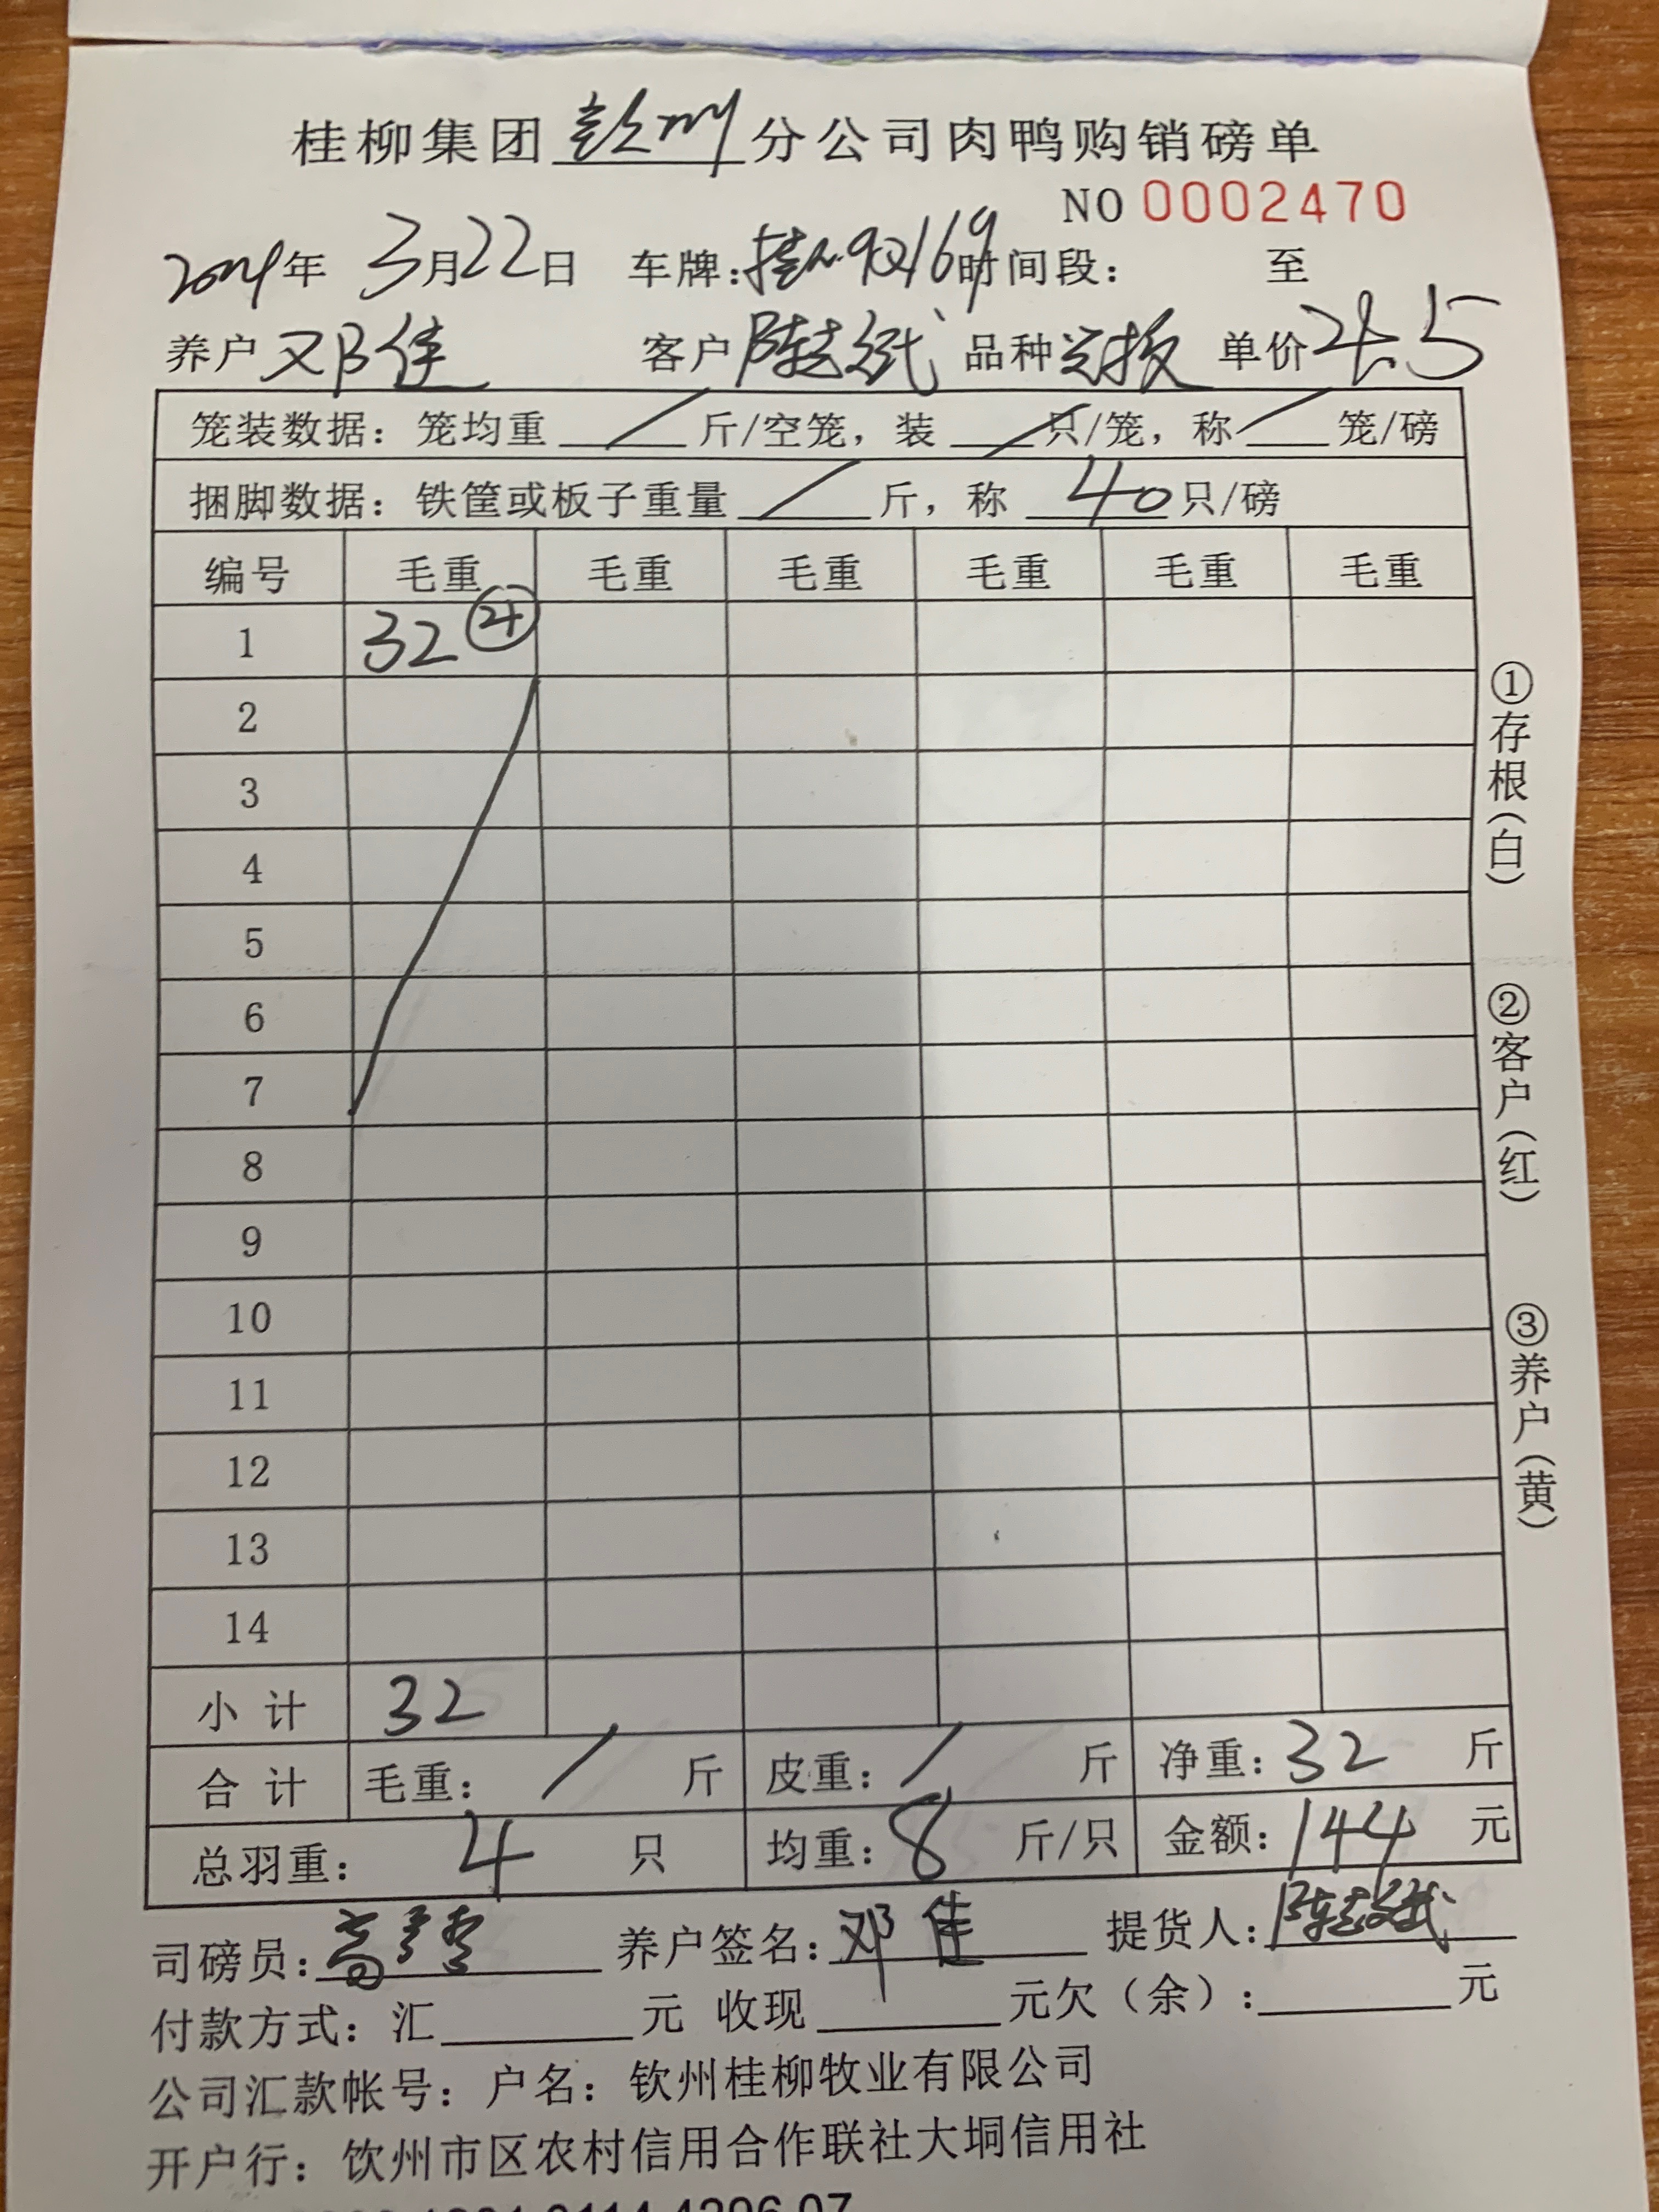 桂柳集团钦州分公司肉鸭购销磅单
NO 0002470
年 3月22日 车牌: 时间段: 至
养户 邓佳 客户 陈志斌 品种 单价 4.5
笼装数据: 笼均重 / 斤/空笼, 装 / 只/笼, 称 / 笼/磅
捆脚数据: 铁筐或板子重量 / 斤, 称 40 只/磅
编号 毛重 毛重 毛重 毛重 毛重 毛重
1 32 ④
2
3
4
5
6
7
8
9
10
11
12
13
14
小计 32
合计 毛重: / 斤 皮重: / 斤 净重: 32 斤
总羽重: 4 只 均重: 8 斤/只 金额: 144 元
司磅员: 养户签名: 邓佳 提货人: 陈志斌
付款方式: 汇 元 收现 元欠(余): 元
公司汇款帐号: 户名: 钦州桂柳牧业有限公司
开户行: 钦州市区农村信用合作联社大垌信用社
①存根(白)
②客户(红)
③养户(黄)